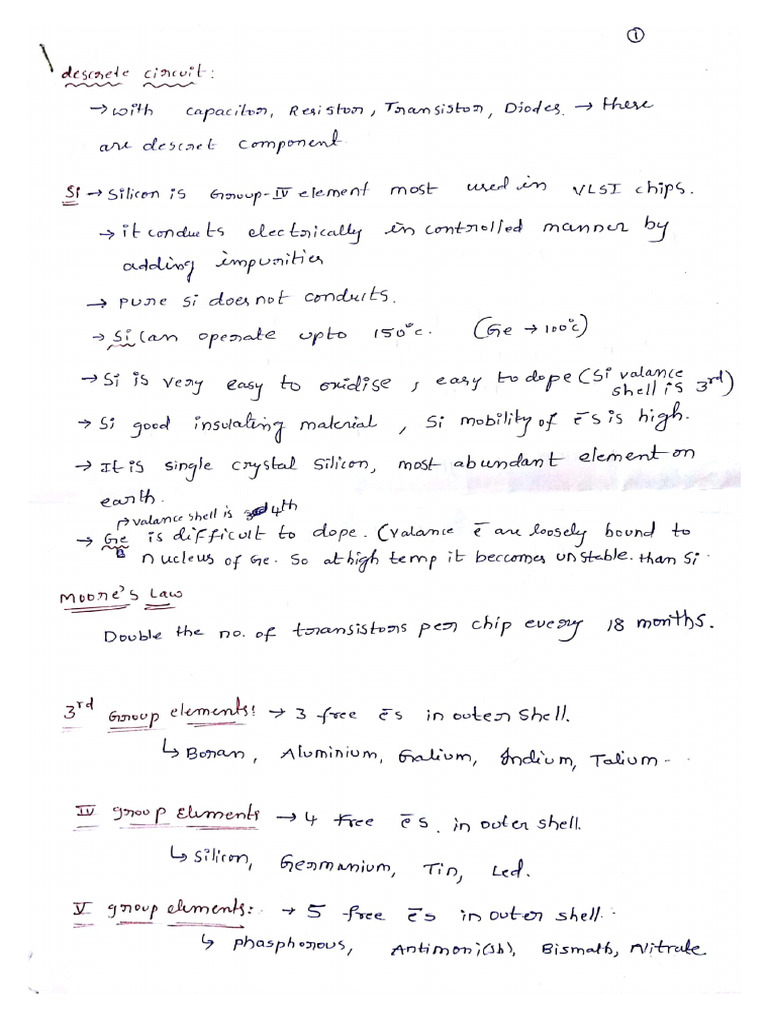 ①
descrete circuit:
→ with capacitor, Resistor, Transistor, Diodes. → these
are descret component
Si → Silicon is Group-IV element most used in VLSI chips.
→ it conducts electrically in controlled manner by
adding impurities
→ pure si does not conducts.
→ Si can operate upto 150°c. (Ge → 100°c)
→ Si is very easy to oxidise, easy to dope (Si valance
shell is 3rd)
→ Si good insulating material, Si mobility of ēs is high.
→ It is single crystal silicon, most abundant element on
earth.
valance shell is 4th
→ Ge is difficult to dope. (valance ē are loosely bound to
nucleus of Ge. So at high temp it becomes unstable. than Si.
Moore's Law
Double the no. of transistors per chip every 18 months.
3rd Group elements: → 3 free ēs in outer shell.
↳ Boran, Aluminium, Galium, Indium, Talium
IV group Elements → 4 free ēs. in outer shell.
↳ silicon, Germanium, Tin, Led.
V group elements: → 5 free ēs in outer shell.
↳ phasphorous, Antimoni(Sb), Bismath, Nitrate